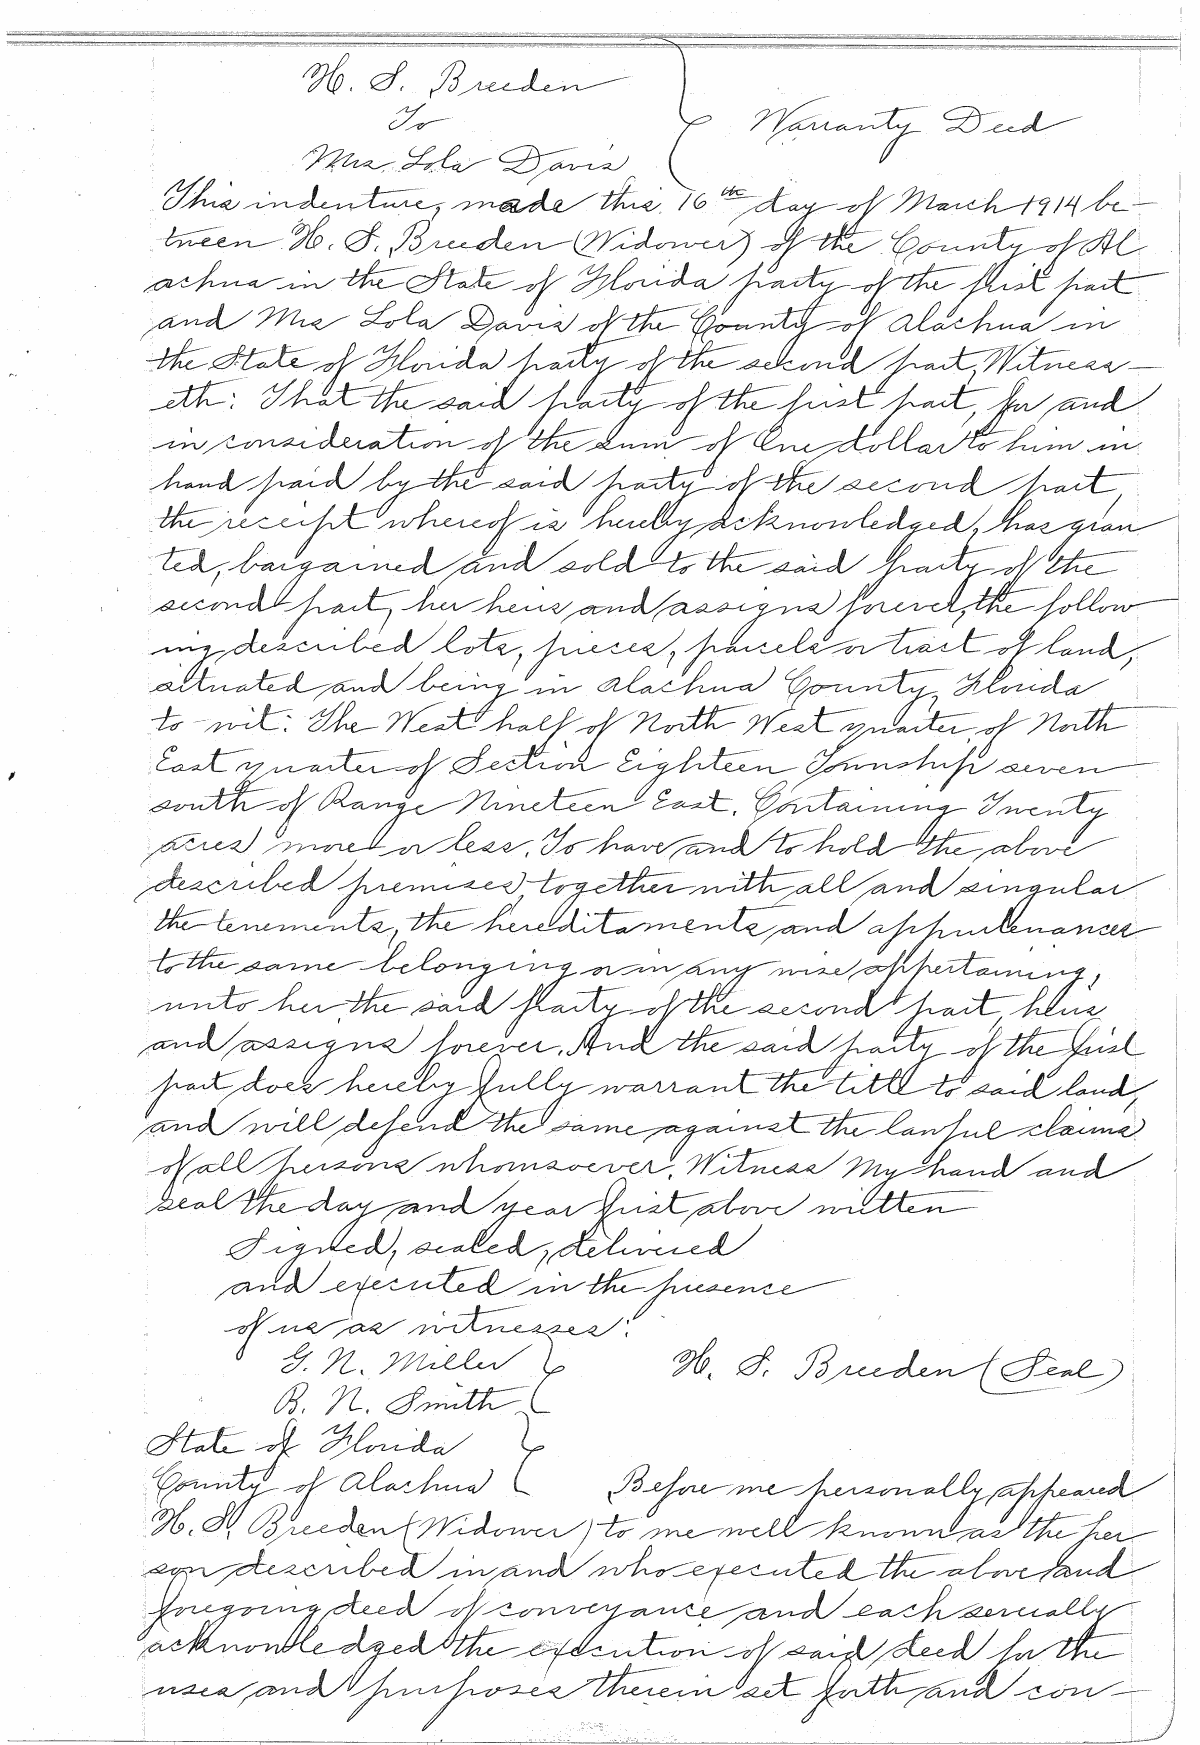 H. S. Breeden
To
Warranty Deed
Mrs. Lola Davis
This indenture, made this 16th day of March 1914 be-
tween H. S. Breeden (Widower) of the County of Al
achua in the State of Florida party of the first part
and Mrs Lola Davis of the County of Alachua in
the State of Florida party of the second part, Witness-
eth: That the said party of the first part, for and
in consideration of the sum of One dollar to him in
hand paid by the said party of the second part,
the receipt whereof is hereby acknowledged, has gran
ted, bargained and sold to the said party of the
second part, her heirs and assigns forever, the follow
ing described lots, pieces, parcels or tract of land,
situated and being in Alachua County, Florida
to wit: The West half of North West quarter of North
East quarter of Section Eighteen Township seven
south of Range Nineteen East. Containing Twenty
acres more or less. To have and to hold the above
described premises, together with all and singular
the tenements, the hereditaments and appurtenances
to the same belonging or in any wise appertaining,
unto her, the said party of the second part, heirs
and assigns forever. And the said party of the first
part does hereby fully warrant the title to said land,
and will defend the same against the lawful claims
of all persons whomsoever. Witness My hand and
seal the day and year first above written
Signed, sealed, delivered
and executed in the presence
of us as witnesses:
G. N. Miller
H. S. Breeden (Seal)
B. N. Smith
State of Florida
County of Alachua Before me personally appeared
H. S. Breeden (Widower) to me well known as the per
son described in and who executed the above and
foregoing deed of conveyance and each serually
acknowledged the execution of said deed for the
uses and purposes therein set forth and con-